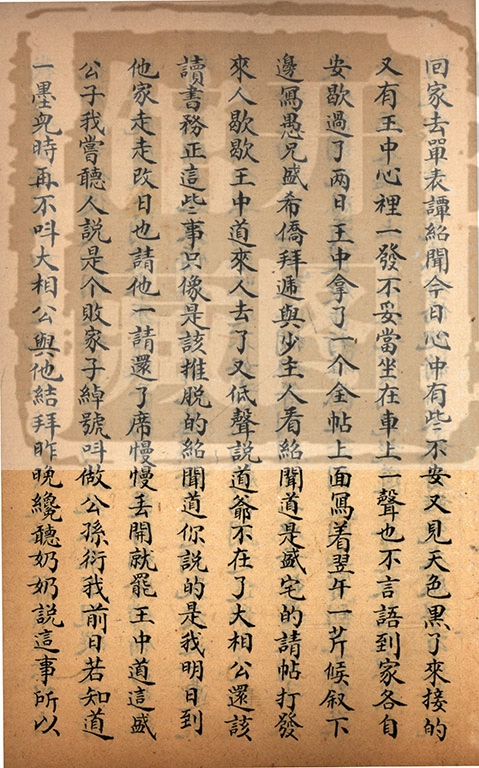 回家去單表譚紹聞今日心中有些不安又見天色黑了來接的
又有王中心裡一發不妥當坐在車上一聲也不言語到家各自
安歇過了两日王中拿了一个全帖上面寫着翌午一芹候叙下
邊寫愚兄盛希僑拜逓與少主人看紹聞道是盛宅的請帖打發
來人歇歇王中道來人去了又低聲説道爺不在了大相公還該
讀書務正這些事只像是該推脱的紹聞道你説的是我明日到
他家走走改日也請他一請還了席慢慢丢開就罷王中道這盛
公子我嘗聽人説是个敗家子綽號呌做公孫衍我前日若知道
一墨皃時再不呌大相公與他結拜昨晚纔聽奶奶説這事所以